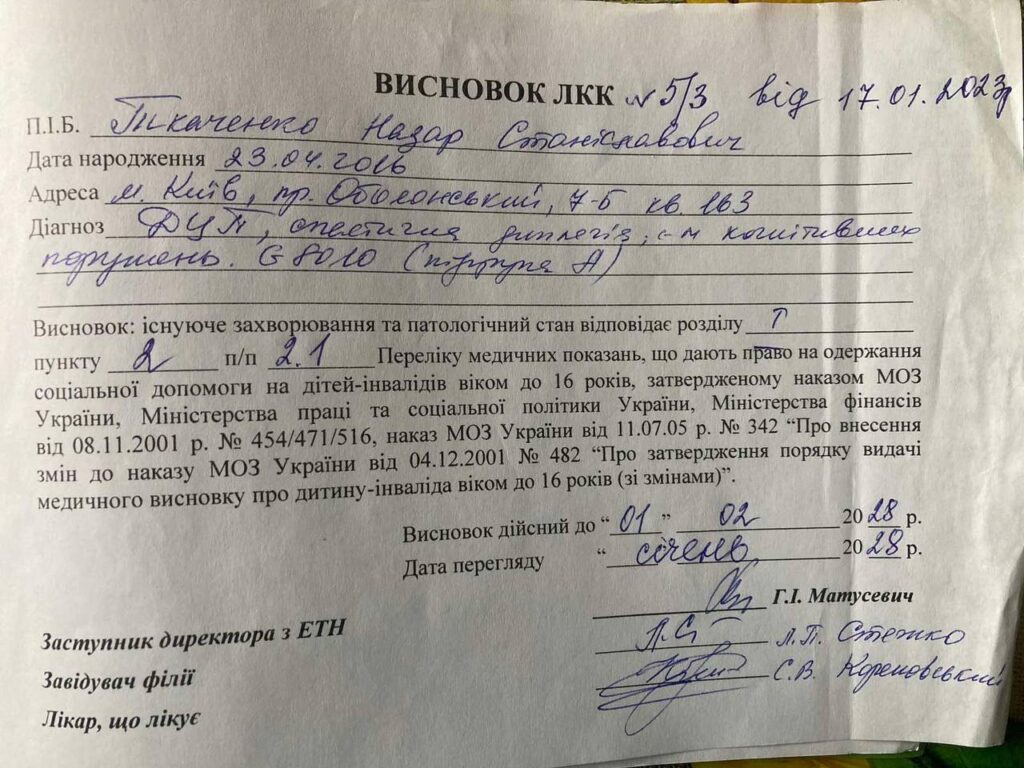 ВИСНОВОК ЛКК № 5/3 від 17.01.2023р
П.І.Б. Ткаченко Назар Станіславович
Дата народження 23.04.2016
Адреса м. Київ, пр. Оболонський, 7-Б кв. 163
Діагноз ДЦП, спастична диплегія, когнітивних
порушень. G 80.10 (підгрупа А)
Висновок: існуюче захворювання та патологічний стан відповідає розділу I
пункту 2 п/п 2.1 Переліку медичних показань, що дають право на одержання
соціальної допомоги на дітей-інвалідів віком до 16 років, затвердженому наказом МОЗ
України, Міністерства праці та соціальної політики України, Міністерства фінансів
від 08.11.2001 р. № 454/471/516, наказ МОЗ України від 11.07.05 р. № 342 “Про внесення
змін до наказу МОЗ України від 04.12.2001 № 482 “Про затвердження порядку видачі
медичного висновку про дитину-інваліда віком до 16 років (зі змінами)”.
Висновок дійсний до “ 01 ” 02 2028 р.
Дата перегляду “ січень 2028 р.
Г.І. Матусевич
Заступник директора з ЕТН
Л.П. Стежко
Завідувач філії
С.В. Кореновський
Лікар, що лікує